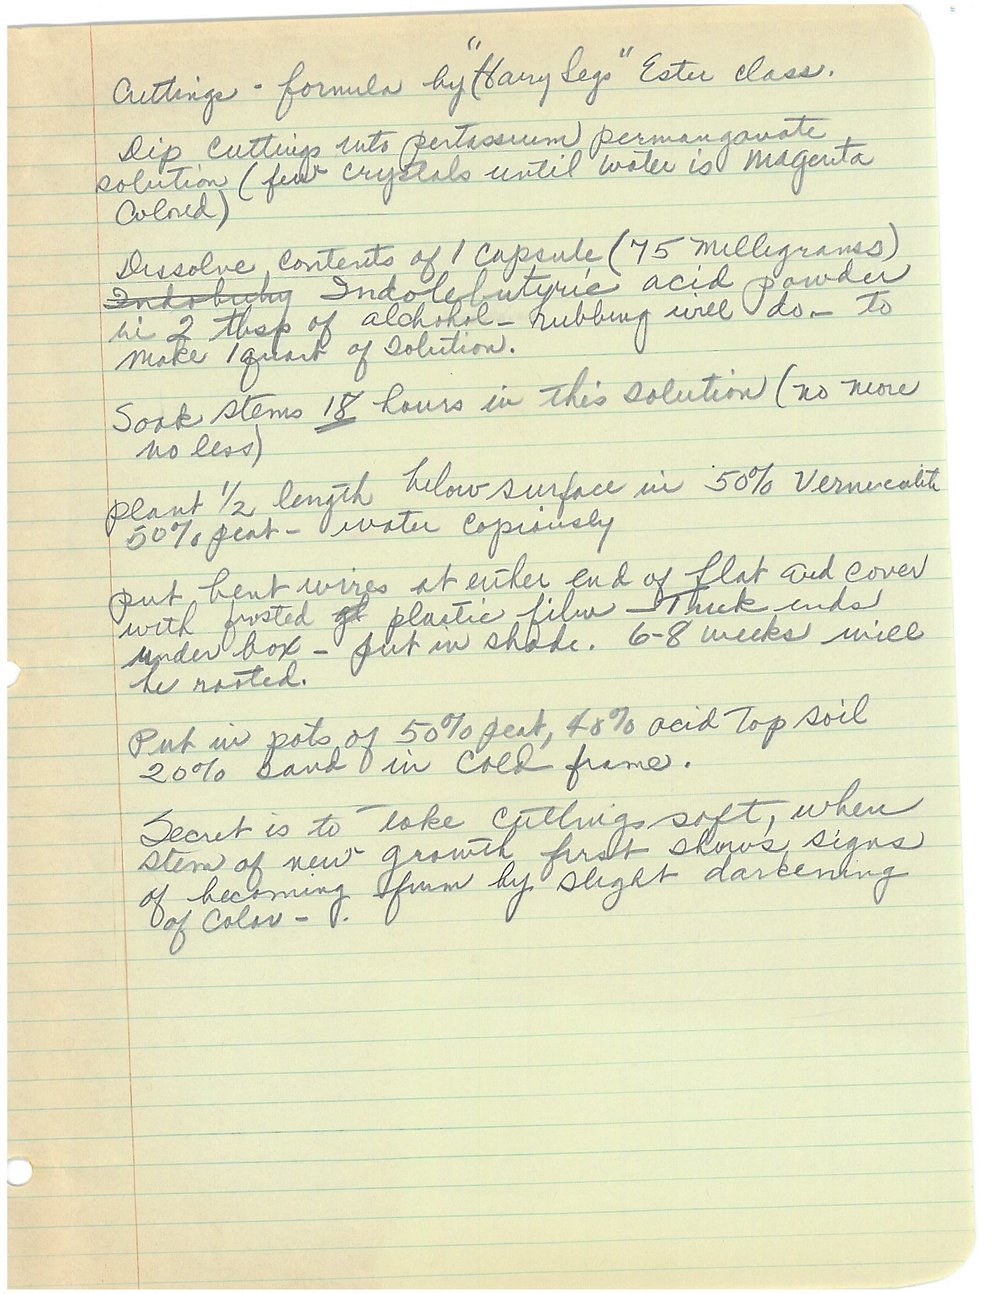 Cuttings - formula by "Hairy Legs" Ester class.
Dip cuttings into pertassium permanganate
solution (few crystals until water is magenta
colored)
Dissolve contents of 1 capsule (75 milligrams)
Indobuty Indolebutyric acid powder
in 2 tbsp of alchohol - rubbing will do - to
make 1 quart of solution.
Soak stems 18 hours in this solution (no more
no less)
plant 1/2 length below surface in 50% Vermiculite
50% peat - water copiously
put bent wires at either end of flat and cover
with frosted plastic film - Tuck ends
under box - put in shade. 6-8 weeks will
be rooted.
Put in pots of 50% peat, 40% acid Top soil
20% sand in cold frame.
Secret is to take cuttings soft, when
stem of new growth first shows signs
of becoming firm by slight darkening
of color - .